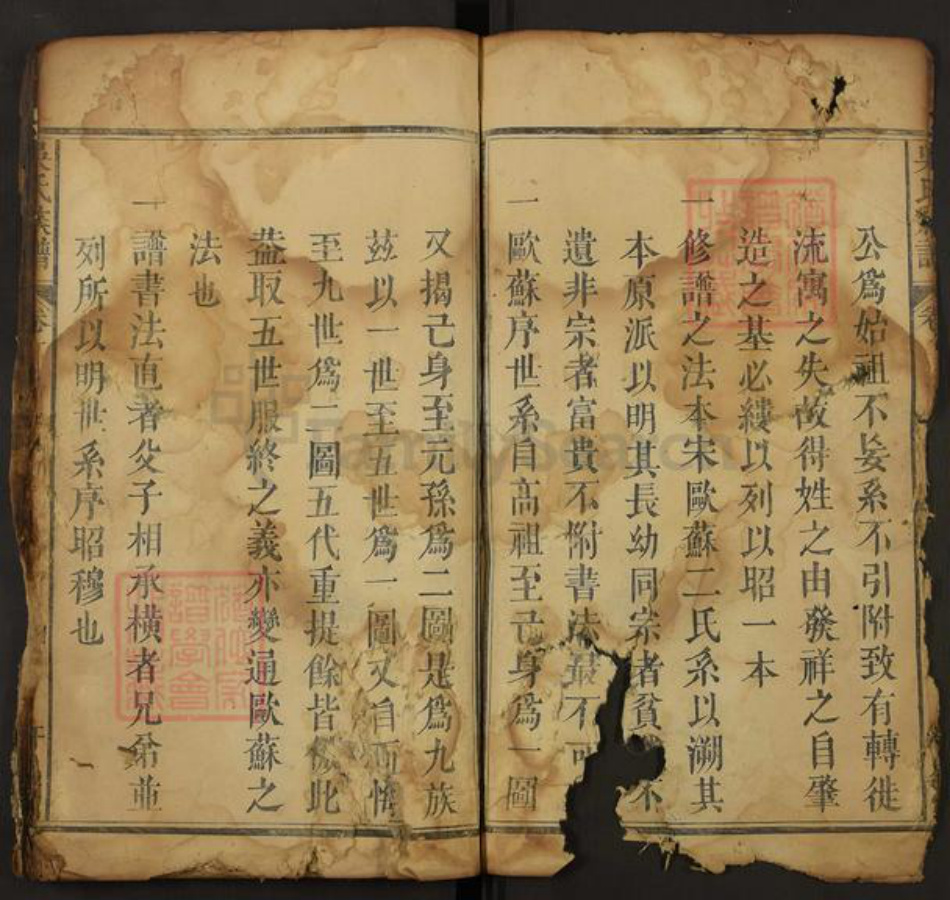 公爲始祖不妄系不引附致有轉徙
流寓之失故得姓之由發祥之自肇
造之基必縷以列以昭一本
一修譜之法本宋歐蘇二氏系以溯其
本原派以明其長幼同宗者貧不
遺非宗者富貴不附書法最不可
一歐蘇序世系自高祖至己身爲一圖
又揭己身至元孫爲二圖是爲九族
茲以一世至五世爲一圖又自
至九世爲二圖五代重提餘皆倣此
葢取五世服終之義亦變通歐蘇之
法也
一譜書法直者父子相承橫者兄弟並
列所以明世系序昭穆也
吳氏族譜
FamilySearch